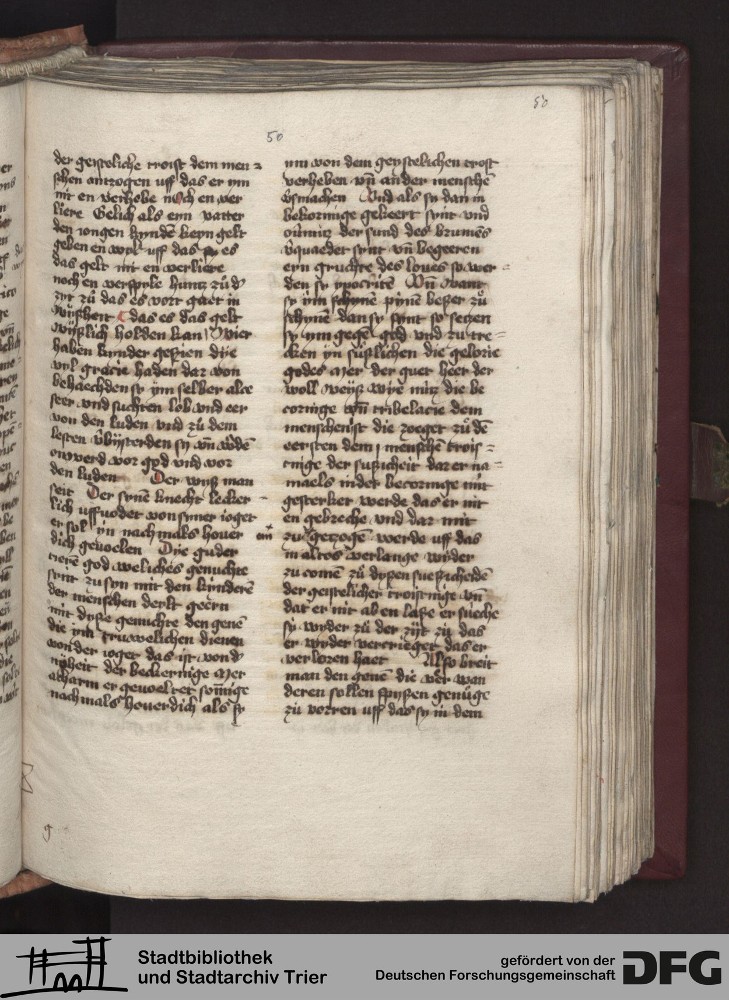 50
50
der geisteliche troist dem men
schen antzogen uff das er ym
nit en verhobe noch en ver
liere Gelich als eyn vatter
den iongen kynden keyn gelt
geben en wyl uff das sy es
das gelt nit en verliere
noch en verspyle huntz zů d
zyt zů das es vort gaet in
wyßheit das es das gelt
wyßlich holden kan wier
haben kynder gesien die
vyl gracie haden dar von
behaechden sy ym selber alce
seer vnd suchten lob vnd eer
von den luden vnd zů dem
lesten
onwerd vor god vnd vor
den luden Der wyß man
seit Der syne knecht lecker
lich uffvodet von syner ioget
er sol yn nachmals hover
dich gevoelen Die guder
god weliches gemuchte
synt zu syn mit den kynderē
der menschen deylt geern
mit dyße gemuchte den genē
die ym truwelichen dienen
von der ioget das ist von d
der bekernige Mer
er gevoeltet
nachmals hoverdich als sy
nm von dem geystelichen trost
verheben vñ ander menschē
Vnd als sy dan in
bekoringe gekeert synt vnd
der sund des
synt vñ begeeren
eyn gruchte des loues so wer
den sy ypocritē Vñ want
sy ym schynē pynē beßer zů
schynē dan sy synt so setzen
sy ym gegē god vnd zu tre
cken yn süßlichen die gelorie
godes Mer der guet heer der
woll weiß wye mitz die be
coringe vñ tribelacie dem
menschen ist die zoeget zů dē
eersten dem menschē trois
tnige der sußicheit dar er na
maels in der becoringe mit
gesterket werde das er nit
en gebreche vnd dar mit
ein
zu getzogē werde uff das
in altos verlange wyder
zu comē zů dyßen suessicheidē
der geistelicher troistnige vñ
dat er nit ab en laße er sueche
sy wyder zů der zijt zů das
er wyder vercrieget das er
verloren haet Also breit
man den genē die ver wan
deren sollen spyßen genůge
zů vorren uff das sy in dem
g
Stadtbibliothek
und Stadtarchiv Trier
gefördert von der
Deutschen Forschungsgemeinschaft
DFG